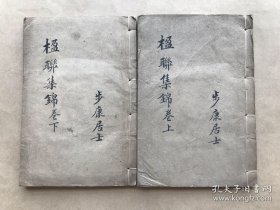 楹聯集錦卷上
步康居士
楹聯集錦卷下
步康居士
孔夫子旧书网